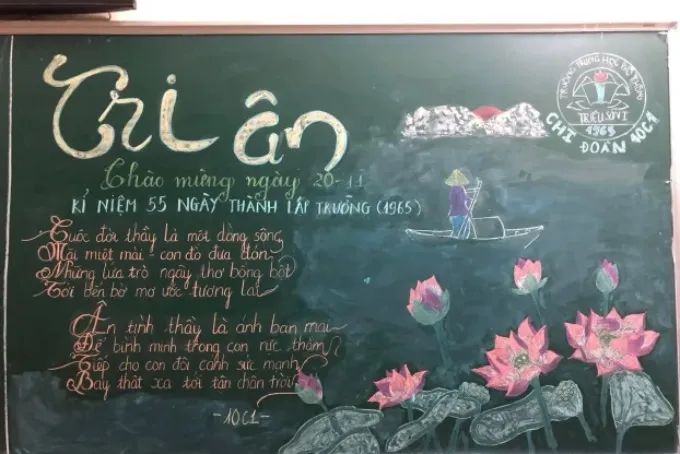 Tri ân
Chào mừng ngày 20-11
KỈ NIỆM 55 NGÀY THÀNH LẬP TRƯỜNG (1965)
Cuộc đời thầy là một dòng sông
Mải miệt mài - con đò đưa đón
Những lứa trò ngây thơ bỏng bột
Tới bến bờ mơ ước tương lai
Ân tình thầy là ánh ban mai
Để bình minh trong con rực thắm
Tiếp cho con đôi cánh sức mạnh
Bay thật xa tới tận chân trời
-10C1-
TRƯỜNG TRUNG HỌC PHỔ THÔNG
TRIỆU SƠN I
1965
CHI ĐOÀN 10C1